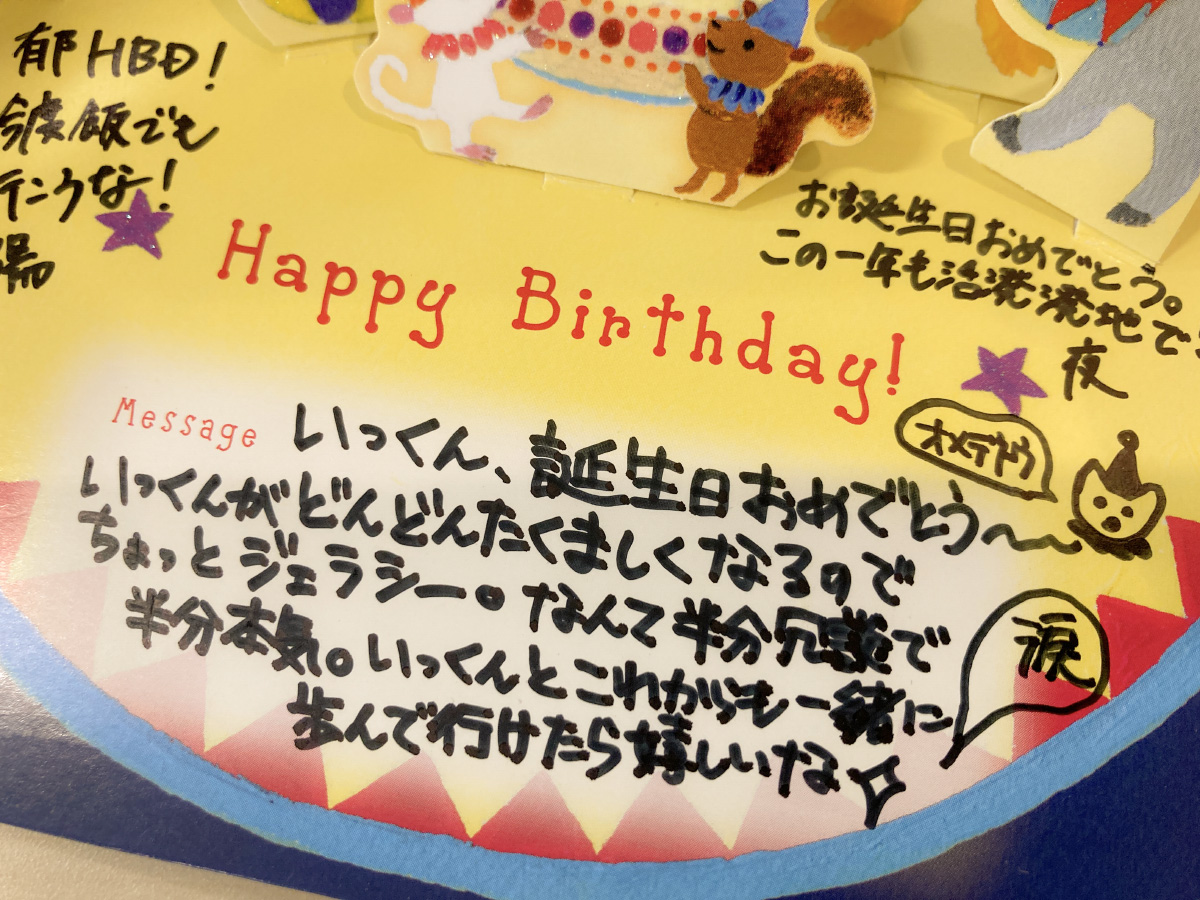 郁HBD!
今度飯でも
テンクなー!
陽
お誕生日おめでとう。
この一年も活溌溌地で
夜
Happy Birthday!
Message
いっくん、誕生日おめでとう〜〜
オメデトウ
いっくんがどんどんたくましくなるので
ちょっとジェラシー。なんて半分冗談で
半分本気。いっくんとこれからも一緒に
歩んで行けたら嬉しいな
涙